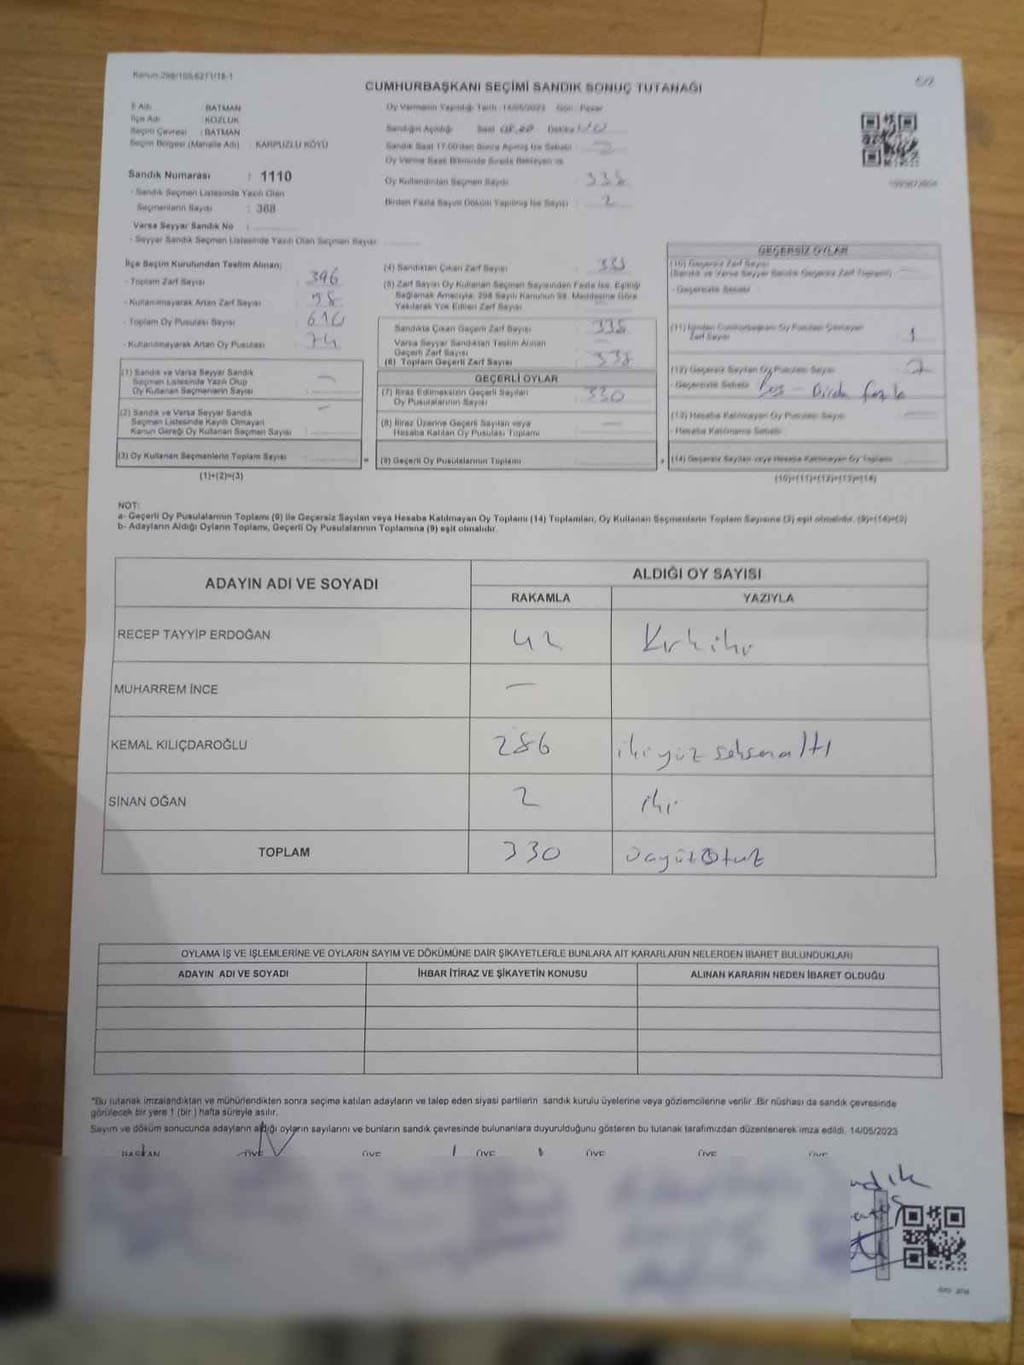 Kanun:298/105,6271/18-1
CUMHURBAŞKANI SEÇİMİ SANDIK SONUÇ TUTANAĞI
İl Adı : BATMAN
İlçe Adı : KOZLUK
Seçim Çevresi : BATMAN
Seçim Bölgesi (Mahalle Adı) : KARPUZLU KÖYÜ
Oy Vermenin Yapıldığı Tarih : 14/05/2023 Gün : Pazar
Sandığın Açıldığı Saat Dakika
Sandık Saat 17:00'den Sonra Açılmış İse Sebebi
Oy Kullandırılan Seçmen Sayısı 338
Birden Fazla Sayım Döküm Yapılmış İse Sayısı 2
Sandık Numarası : 1110
- Sandık Seçmen Listesinde Yazılı Olan
Seçmenlerin Sayısı : 368
Varsa Seyyar Sandık No :
- Seyyar Sandık Seçmen Listesinde Yazılı Olan Seçmen Sayısı
İlçe Seçim Kurulundan Teslim Alınan;
- Toplam Zarf Sayısı 396
- Kullanılmayarak Artan Zarf Sayısı
- Toplam Oy Pusulası Sayısı
- Kullanılmayarak Artan Oy Pusulası 74
(1) Sandık ve Varsa Seyyar Sandık
Seçmen Listesinde Yazılı Olup
Oy Kullanan Seçmenlerin Sayısı –
(2) Sandık ve Varsa Seyyar Sandık
Seçmen Listesinde Kayıtlı Olmayan
Kanun Gereği Oy Kullanan Seçmen Sayısı –
(3) Oy Kullanan Seçmenlerin Toplam Sayısı
(1)+(2)=(3)
(4) Sandıktan Çıkan Zarf Sayısı
(5) Zarf Sayısı Oy Kullanan Seçmen Sayısından Fazla İse, Eşitliği
Sağlamak Amacıyla; 298 Sayılı Kanunun 98. Maddesine Göre
Yakılarak Yok Edilen Zarf Sayısı
Sandıkta Çıkan Geçerli Zarf Sayısı 338
Varsa Seyyar Sandıktan Teslim Alınan
Geçerli Zarf Sayısı
(6) Toplam Geçerli Zarf Sayısı 338
GEÇERLİ OYLAR
(7) İtiraz Edilmeksizin Geçerli Sayılan
Oy Pusulalarının Sayısı 330
(8) İtiraz Üzerine Geçerli Sayılan veya
Hesaba Katılan Oy Pusulası Toplamı –
(9) Geçerli Oy Pusulalarının Toplamı
GEÇERSİZ OYLAR
(10) Geçersiz Zarf Sayısı
(Sandık ve Varsa Seyyar Sandık Geçersiz Zarf Toplamı)
- Geçersizlik Sebebi
(11) İçinden Cumhurbaşkanı Oy Pusulası Çıkmayan
Zarf Sayısı 1
(12) Geçersiz Sayılan Oy Pusulası Sayısı
- Geçersizlik Sebebi Boş - Birden fazla
(13) Hesaba Katılmayan Oy Pusulası Sayısı
- Hesaba Katılmama Sebebi
(14) Geçersiz Sayılan veya Hesaba Katılmayan Oy Toplamı
(10)+(11)+(12)+(13)=(14)
NOT:
a- Geçerli Oy Pusulalarının Toplamı (9) ile Geçersiz Sayılan veya Hesaba Katılmayan Oy Toplamı (14) Toplamları, Oy Kullanan Seçmenlerin Toplam Sayısına (3) eşit olmalıdır. (9)+(14)=(3)
b- Adayların Aldığı Oyların Toplamı, Geçerli Oy Pusulalarının Toplamına (9) eşit olmalıdır.
ADAYIN ADI VE SOYADI
ALDIĞI OY SAYISI
RAKAMLA YAZIYLA
RECEP TAYYİP ERDOĞAN 42 Kırkiki
MUHARREM İNCE –
KEMAL KILIÇDAROĞLU 286 ikiyüz seksenaltı
SİNAN OĞAN 2 iki
TOPLAM 330 üçyüzotuz
OYLAMA İŞ VE İŞLEMLERİNE VE OYLARIN SAYIM VE DÖKÜMÜNE DAİR ŞİKAYETLERLE BUNLARA AİT KARARLARIN NELERDEN İBARET BULUNDUKLARI
ADAYIN ADI VE SOYADI İHBAR İTİRAZ VE ŞİKAYETİN KONUSU ALINAN KARARIN NEDEN İBARET OLDUĞU
"Bu tutanak imzalandıktan ve mühürlendikten sonra seçime katılan adayların ve talep eden siyasi partilerin sandık kurulu üyelerine veya gözlemcilerine verilir .Bir nüshası da sandık çevresinde
görülecek bir yere 1 (bir ) hafta süreyle asılır.
Sayım ve döküm sonucunda adayların aldığı oyların sayılarını ve bunların sandık çevresinde bulunanlara duyurulduğunu gösteren bu tutanak tarafımızdan düzenlenerek imza edildi. 14/05/2023
BAŞKAN ÜYE ÜYE ÜYE ÜYE ÜYE ÜYE